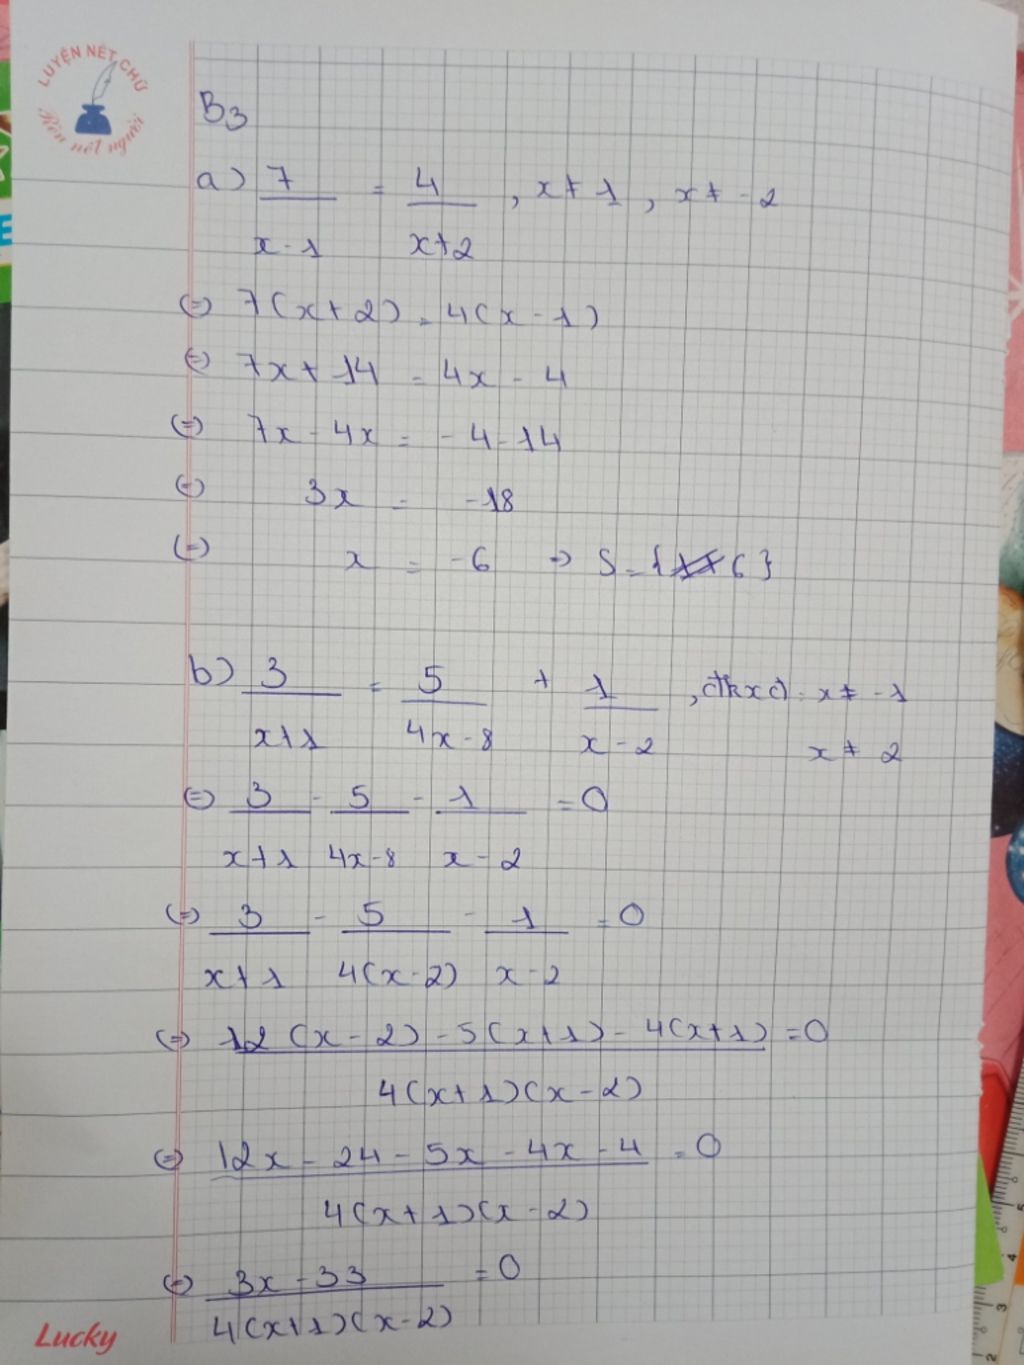 LUYỆN NÉT CHỮ
Rèn nết người
B3
a) 7/(x-1) = 4/(x+2), x ≠ 1, x ≠ -2
(=) 7(x+2) = 4(x-1)
(=) 7x+14 = 4x-4
(=) 7x-4x = -4-14
(=) 3x = -18
(=) x = -6 => S={6}
b) 3/(x+1) = 5/(4x-8) + 1/(x-2), đkxđ: x ≠ -1
x ≠ 2
(=) 3/(x+1) - 5/(4x-8) - 1/(x-2) = 0
(=) 3/(x+1) - 5/(4(x-2)) - 1/(x-2) = 0
(=) (12(x-2)-5(x+1)-4(x+1))/(4(x+1)(x-2)) = 0
(=) (12x-24-5x-4x-4)/(4(x+1)(x-2)) = 0
(=) (3x-33)/(4(x+1)(x-2)) = 0
Lucky